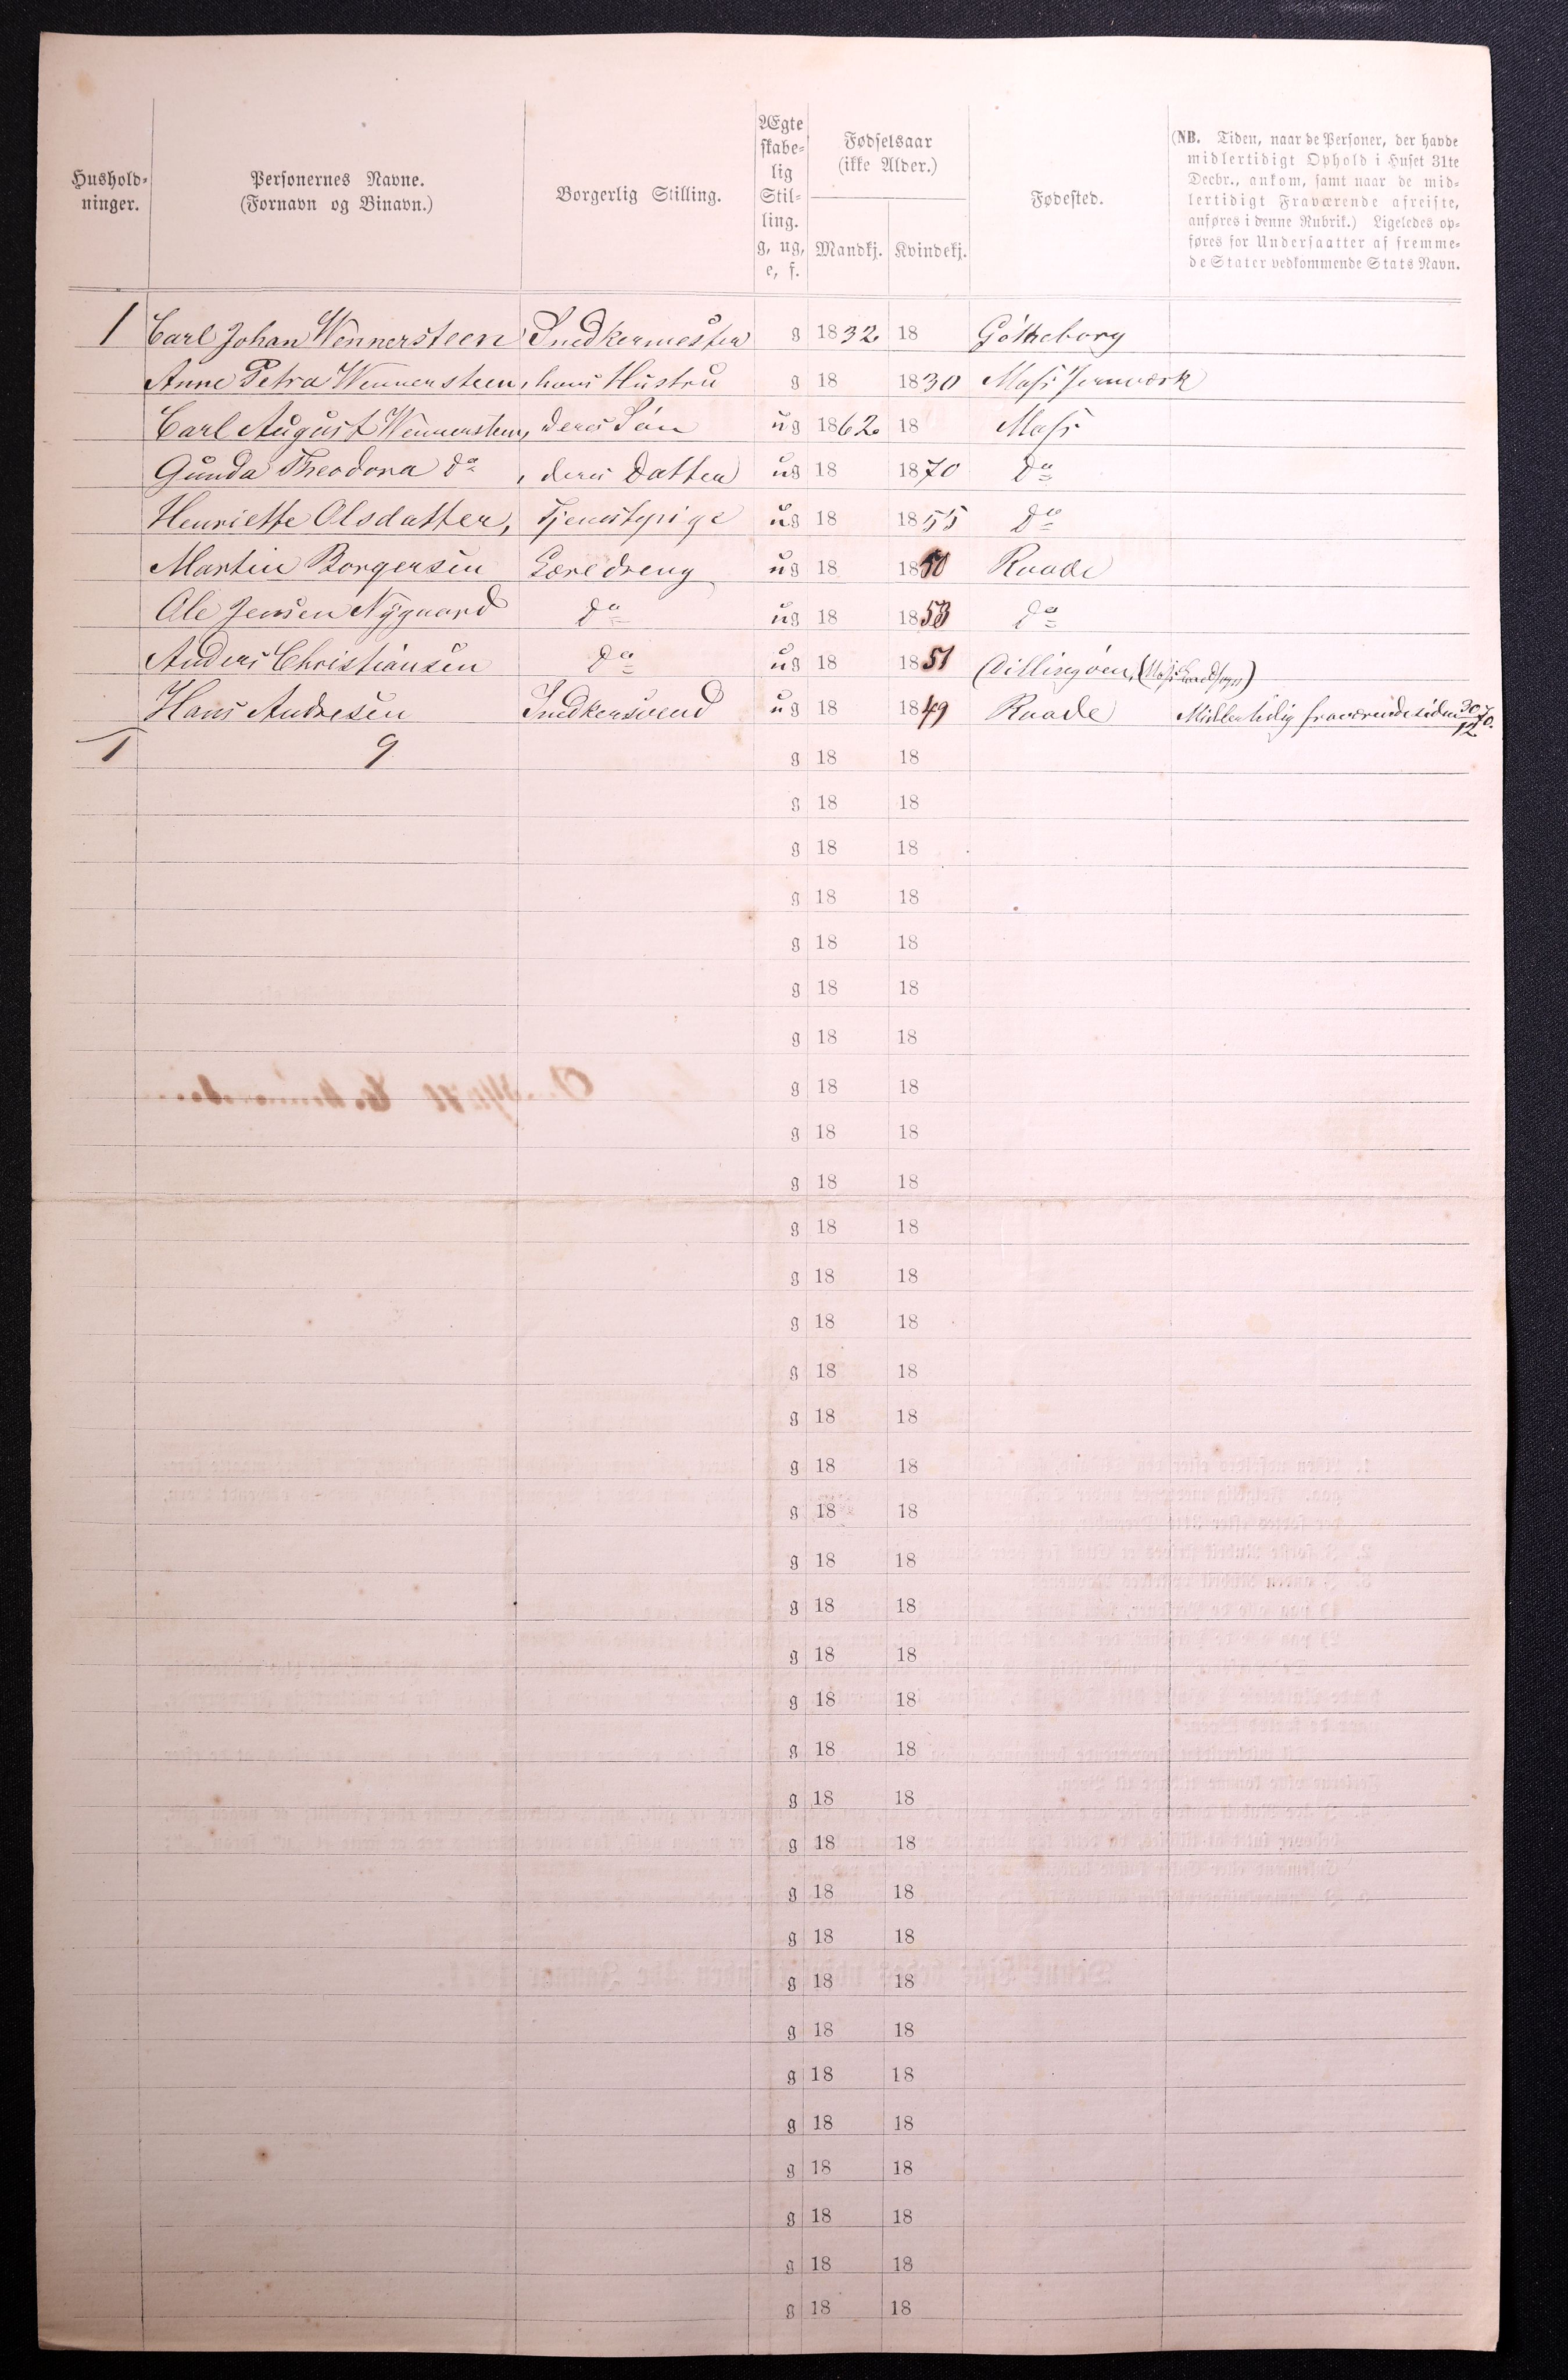 Hushold-
ninger.
Personernes Navne.
(Fornavn og Binavn.)
Borgerlig Stilling.
Ægte
skabe-
lig
Stil-
ling.
g, ug,
e, f.
Fødselsaar
(ikke Alder.)
Mandkj. Kvindekj.
Fødested.
(NB. Tiden, naar de Personer, der havde
midlertidigt Ophold i Huset 31te
Decbr., ankom, samt naar de mid-
lertidigt Fraværende afreiste,
anføres i denne Rubrik.) Ligeledes op-
føres for Undersaatter af fremme-
de Stater vedkommende Stats Navn.
1 Carl Johan Wennersteen Snedkermester g 1832 18 Gøtheborg
Anne Petra Wennersteen, hans Hustru g 18 1830 Moss Jernværk
Carl August Wennersteen, deres Søn ug 1862 18 Moss
Gunda Theodora do, deres Datter ug 18 1870 do
Henriette Olsdatter, Tjenestepige ug 18 1855 do
Martin Borgersen Læredreng ug 18 1850 Raade
Ole Jensen Nygaard do ug 18 1853 do
Anders Christiansen do ug 18 1851 Dillingøen, (Moss Landsogn)
Hans Andresen Snedkersvend ug 18 1849 Raade Midlertidig fraværende siden 30/12 70.
1 9 g 18 18
g 18 18
g 18 18
g 18 18
g 18 18
g 18 18
g 18 18
g 18 18
g 18 18
g 18 18
g 18 18
g 18 18
g 18 18
g 18 18
g 18 18
g 18 18
g 18 18
g 18 18
g 18 18
g 18 18
g 18 18
g 18 18
g 18 18
g 18 18
g 18 18
g 18 18
g 18 18
g 18 18
g 18 18
g 18 18
g 18 18
g 18 18
g 18 18
g 18 18